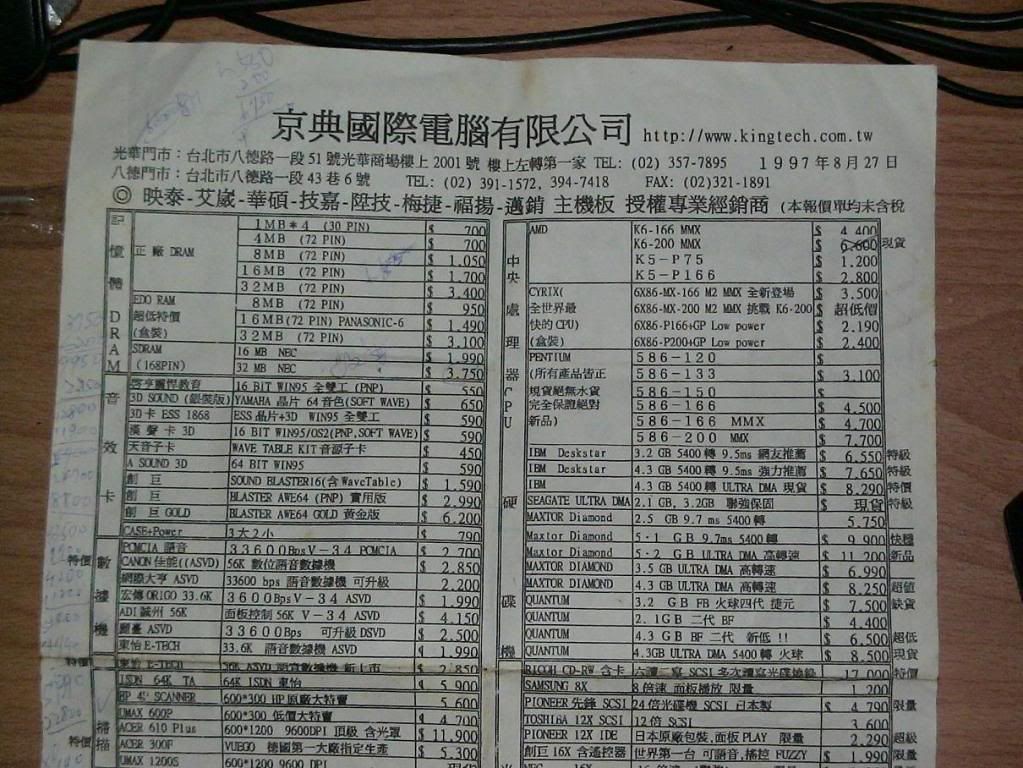 京典國際電腦有限公司 http://www.kingtech.com.tw
光華門市：台北市八德路一段 51 號光華商場樓上 2001 號 樓上左轉第一家 TEL: (02) 357-7895 1997年8月27日
八德門市：台北市八德路一段 43 巷 6 號 TEL: (02) 391-1572, 394-7418 FAX: (02)321-1891
◎ 映泰-艾崴-華碩-技嘉-陞技-梅捷-福揚-邁銷 主機板 授權專業經銷商 (本報價單均未含稅
記憶體 DRAM
正廠 DRAM 1MB*4 (30 PIN) $ 700
4MB (72 PIN) $ 700
8MB (72 PIN) $ 1,050
16MB (72 PIN) $ 1,700
32MB (72 PIN) $ 3,400
EDO RAM 8MB (72 PIN) $ 950
超低特價 16MB (72 PIN) PANASONIC-6 $ 1,490
(盒裝) 32MB (72 PIN) $ 3,100
SDRAM 16 MB NEC $ 1,990
(168PIN) 32 MB NEC $ 3,750
音效卡
16 BIT WIN95 全雙工 (PNP) $ 550
3D SOUND (銀裝版) YAMAHA 晶片 64 音色(SOFT WAVE) $ 650
3D卡 ESS 1868 ESS 晶片+3D WIN95 全雙工 $ 590
漢聲卡 3D 16 BIT WIN95/OS2(PNP,SOFT WAVE) $ 590
天音子卡 WAVE TABLE KIT 音源子卡 $ 450
A SOUND 3D 64 BIT WIN95 $ 590
創巨 SOUND BLASTER16(含 WaveTable) $ 1,590
創巨 BLASTER AWE64 (PNP) 實用版 $ 2,990
創巨 GOLD BLASTER AWE64 GOLD 黃金版 $ 6,200
CASE+Power 3大2小 $ 790
數據機
PCMCIA 語音 33600Bps V-34 PCMCIA $ 2,700
特價 CANON 佳能((ASVD) 56K 數位語音數據機 $ 2,850
網際大亨 ASVD 33600 bps 語音數據機 可升級 2,200
宏傳 ORIGO 33.6K 33600Bps V-34 ASVD $ 1,990
ADI 誠洲 56K 面板控制 56K V-34 ASVD $ 4,150
ASVD 33600Bps 可升級 DSVD $ 2,500
東怡 E-TECH 33.6K 語音數據機 ASVD $ 1,990
特價 東怡 E-TECH 56K ASVD 語音數據機 新上市 $ 2,850
ISDN 64K TA 64K ISDN 東怡 $ 5,900
掃描
HP 4S SCANNER 600*300 HP 原廠大特賣 5,600
UMAX 600P 600*300 低價大特賣 $ 4,700
ACER 610 Plus 600*1200 9600DPI 頂級 含光罩 $ 11,900
特價 ACER 300F VUEGO 德國第一大廠指定生產 $ 5,300
UMAX 1200S 600*1200 9600 DPI
中央處理器 CPU
AMD K6-166 MMX $ 4,400
K6-200 MMX 6,600 現貨
K5-P75 $ 1,200
K5-P166 $ 2,800
CYRIX( 6X86-MX-166 M2 MMX 全新登場 $ 3,500
全世界最 6X86-MX-200 M2 MMX 挑戰 K6-200 $ 超低價
快的CPU) 6X86-P166+GP Low power $ 2,190
(盒裝) 6X86-P200+GP Low power $ 2,400
PENTIUM 586-120 $
(所有產品皆正 586-133 $ 3,100
現貨絕無水貨 586-150 $
完全保證絕對 586-166 $ 4,500
新品) 586-166 MMX $ 4,700
586-200 MMX $ 7,700
硬碟機
IBM Deskstar 3.2 GB 5400 轉 9.5ms 網友推薦 $ 6,550 特級
IBM Deskstar 4.3 GB 5400 轉 9.5ms 強力推薦 $ 7,650 特級
IBM 4.3 GB 5400 轉 ULTRA DMA 現貨 $ 8,290 特價
SEAGATE ULTRA DMA 2.1 GB, 3.2GB 聯強保固 $ 現貨 特級
MAXTOR Diamond 2.5 GB 9.7 ms 5400 轉 5,750
Maxtor Diamond 5.1 GB 9.7ms 5400 轉 $ 9,900 快穩
Maxtor Diamond 5.2 GB ULTRA DMA 高轉速 $ 11,200 新品
MAXTOR DIAMOND 3.5 GB ULTRA DMA 高轉速 $ 6,990
MAXTOR DIAMOND 4.3 GB ULTRA DMA 高轉速 $ 8,250 超值
QUANTUM 3.2 GB FB 火球四代 捷元 $ 7,500 缺貨
QUANTUM 2.1GB 二代 BF $ 4,400
QUANTUM 4.3 GB BF 二代 新低 !! $ 6,500 超低
QUANTUM 4.3GB ULTRA DMA 5400 轉 火球 $ 8,500 現貨
RICOH CD-RW 含卡 六讀二寫 SCSI 多次讀寫光碟燒錄 17,000 特價
SAMSUNG 8X 8 倍速 面板播放 限量 $ 1,200
PIONEER 先鋒 SCSI 24 倍光碟機 SCSI 日本製 $ 4,790 限量
TOSHIBA 12X SCSI 12 倍 SCSI 3,600
PIONEER 12X IDE 日本原廠包裝,面板 PLAY 限量 2,290 超級
創巨 16X 含遙控器 世界第一台 可語音,搖控 FUZZY $ 1,990 限量